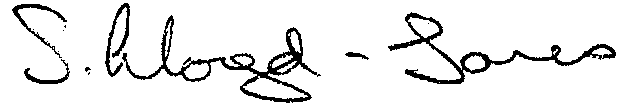 S. Lloyd-Jones